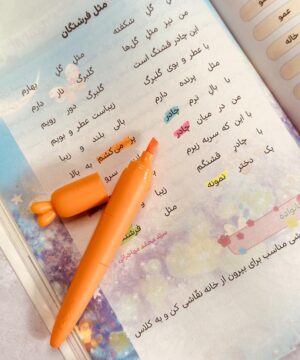 مثل فرشتگان
گل شکفته
مثل گل بهارم
من نیز مثل گل‌ها
گلبرگ ناز دارم
این چادر قشنگ است
گلبرگ دور رویم
با عطر و بوی گلبرگ
زیباست عطر و بویم
مثل پرنده دارم
بالی بلند و زیبا
با بال نرم چادر
پر می‌کشم به بالا
من در میان چادر
سرو
با این که سربه زیرم
با چادر قشنگم
مثل
یک دختر نمونه
سید محمد مهاجرانی
مناسب برای بیرون از خانه نقاشی کن و به کلاس
عمو
خاله